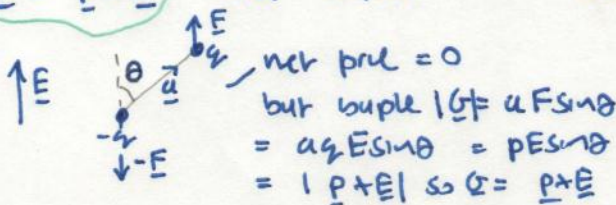 F
q
θ
a
E
-q
-F
net force = 0
but couple |G| = aFsinθ
= aqEsinθ = pEsinθ
= |p×E| so G = p×E